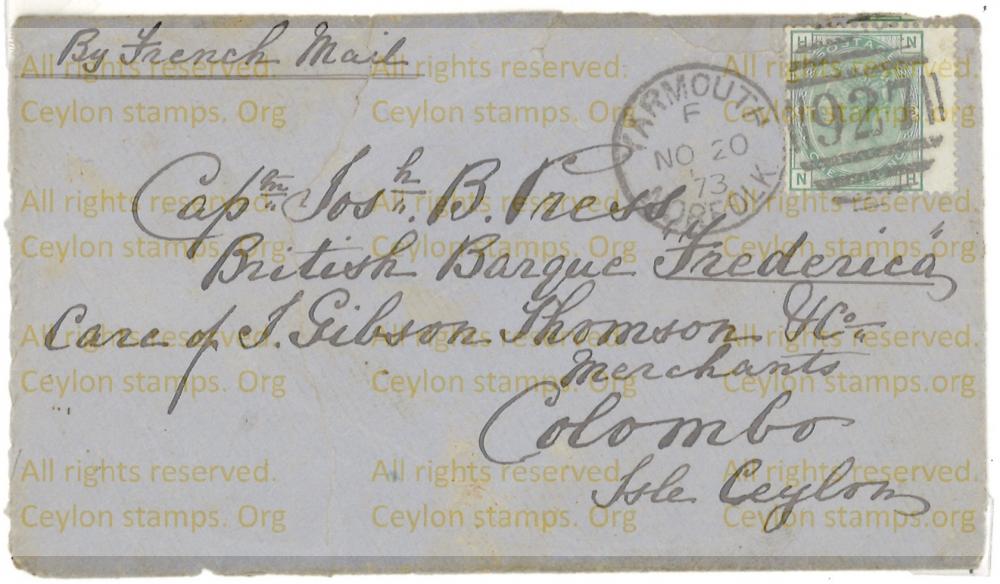 By French Mail
YARMOUTH
F
NO 20
73
NORFOLK
H N
927
N H
Captn Josh. B. Press,
British Barque "Frederica"
Care of J. Gibson Thomson & Co
Merchants
Colombo
Isle Ceylon
All rights reserved. All rights reserved. All rights reserved.
Ceylon stamps. Org Ceylon stamps. Org Ceylon stamps. Org
All rights reserved. All rights reserved. All rights reserved.
Ceylon stamps. Org Ceylon stamps. Org Ceylon stamps. Org
All rights reserved. All rights reserved. All rights reserved.
Ceylon stamps. Org Ceylon stamps. Org Ceylon stamps. Org
All rights reserved. All rights reserved. All rights reserved.
Ceylon stamps. Org Ceylon stamps. Org Ceylon stamps. Org